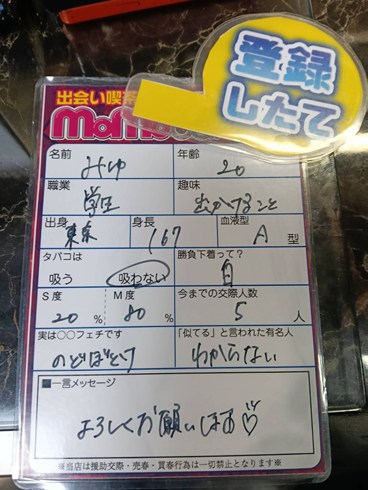 登録
したて
出会い喫茶
名前 みゆ 年齢 20
職業 学生 趣味 出かけること
出身 東京 身長 167 血液型 A 型
タバコは 勝負下着って？
吸う 吸わない 白
S度 M度 今までの交際人数
20 % 80 % 5 人
実は○○フェチです 「似てる」と言われた有名人
のどぼとけ わからない
■一言メッセージ
よろしくお願いします♡
※当店は援助交際・売春・買春行為は一切禁止となります※